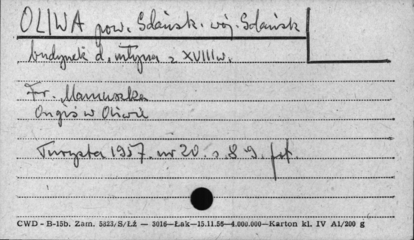 OLIWA pow. Gdańsk. woj. Gdańsk
budynek d. młyna z XVIII w.
Fr. Mamuszka
Ongiś w Oliwie
Turysta 1957. nr 20. s. 8 9. fot.
CWD - B-15b. Zam. 5823/S/Łż — 3016—Łak—15.11.56—4.000.000—Karton kl. IV A1/200 g